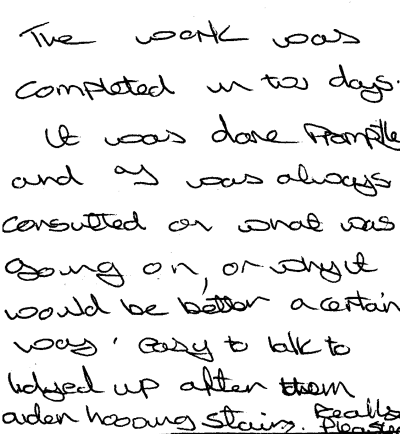 The work was
completed in two days.
It was done Promptly
and I was always
consulted on what was
going on, or why it
would be better a certain
way. easy to talk to
tidyed up after them
even hooving stairs. Really
Pleased